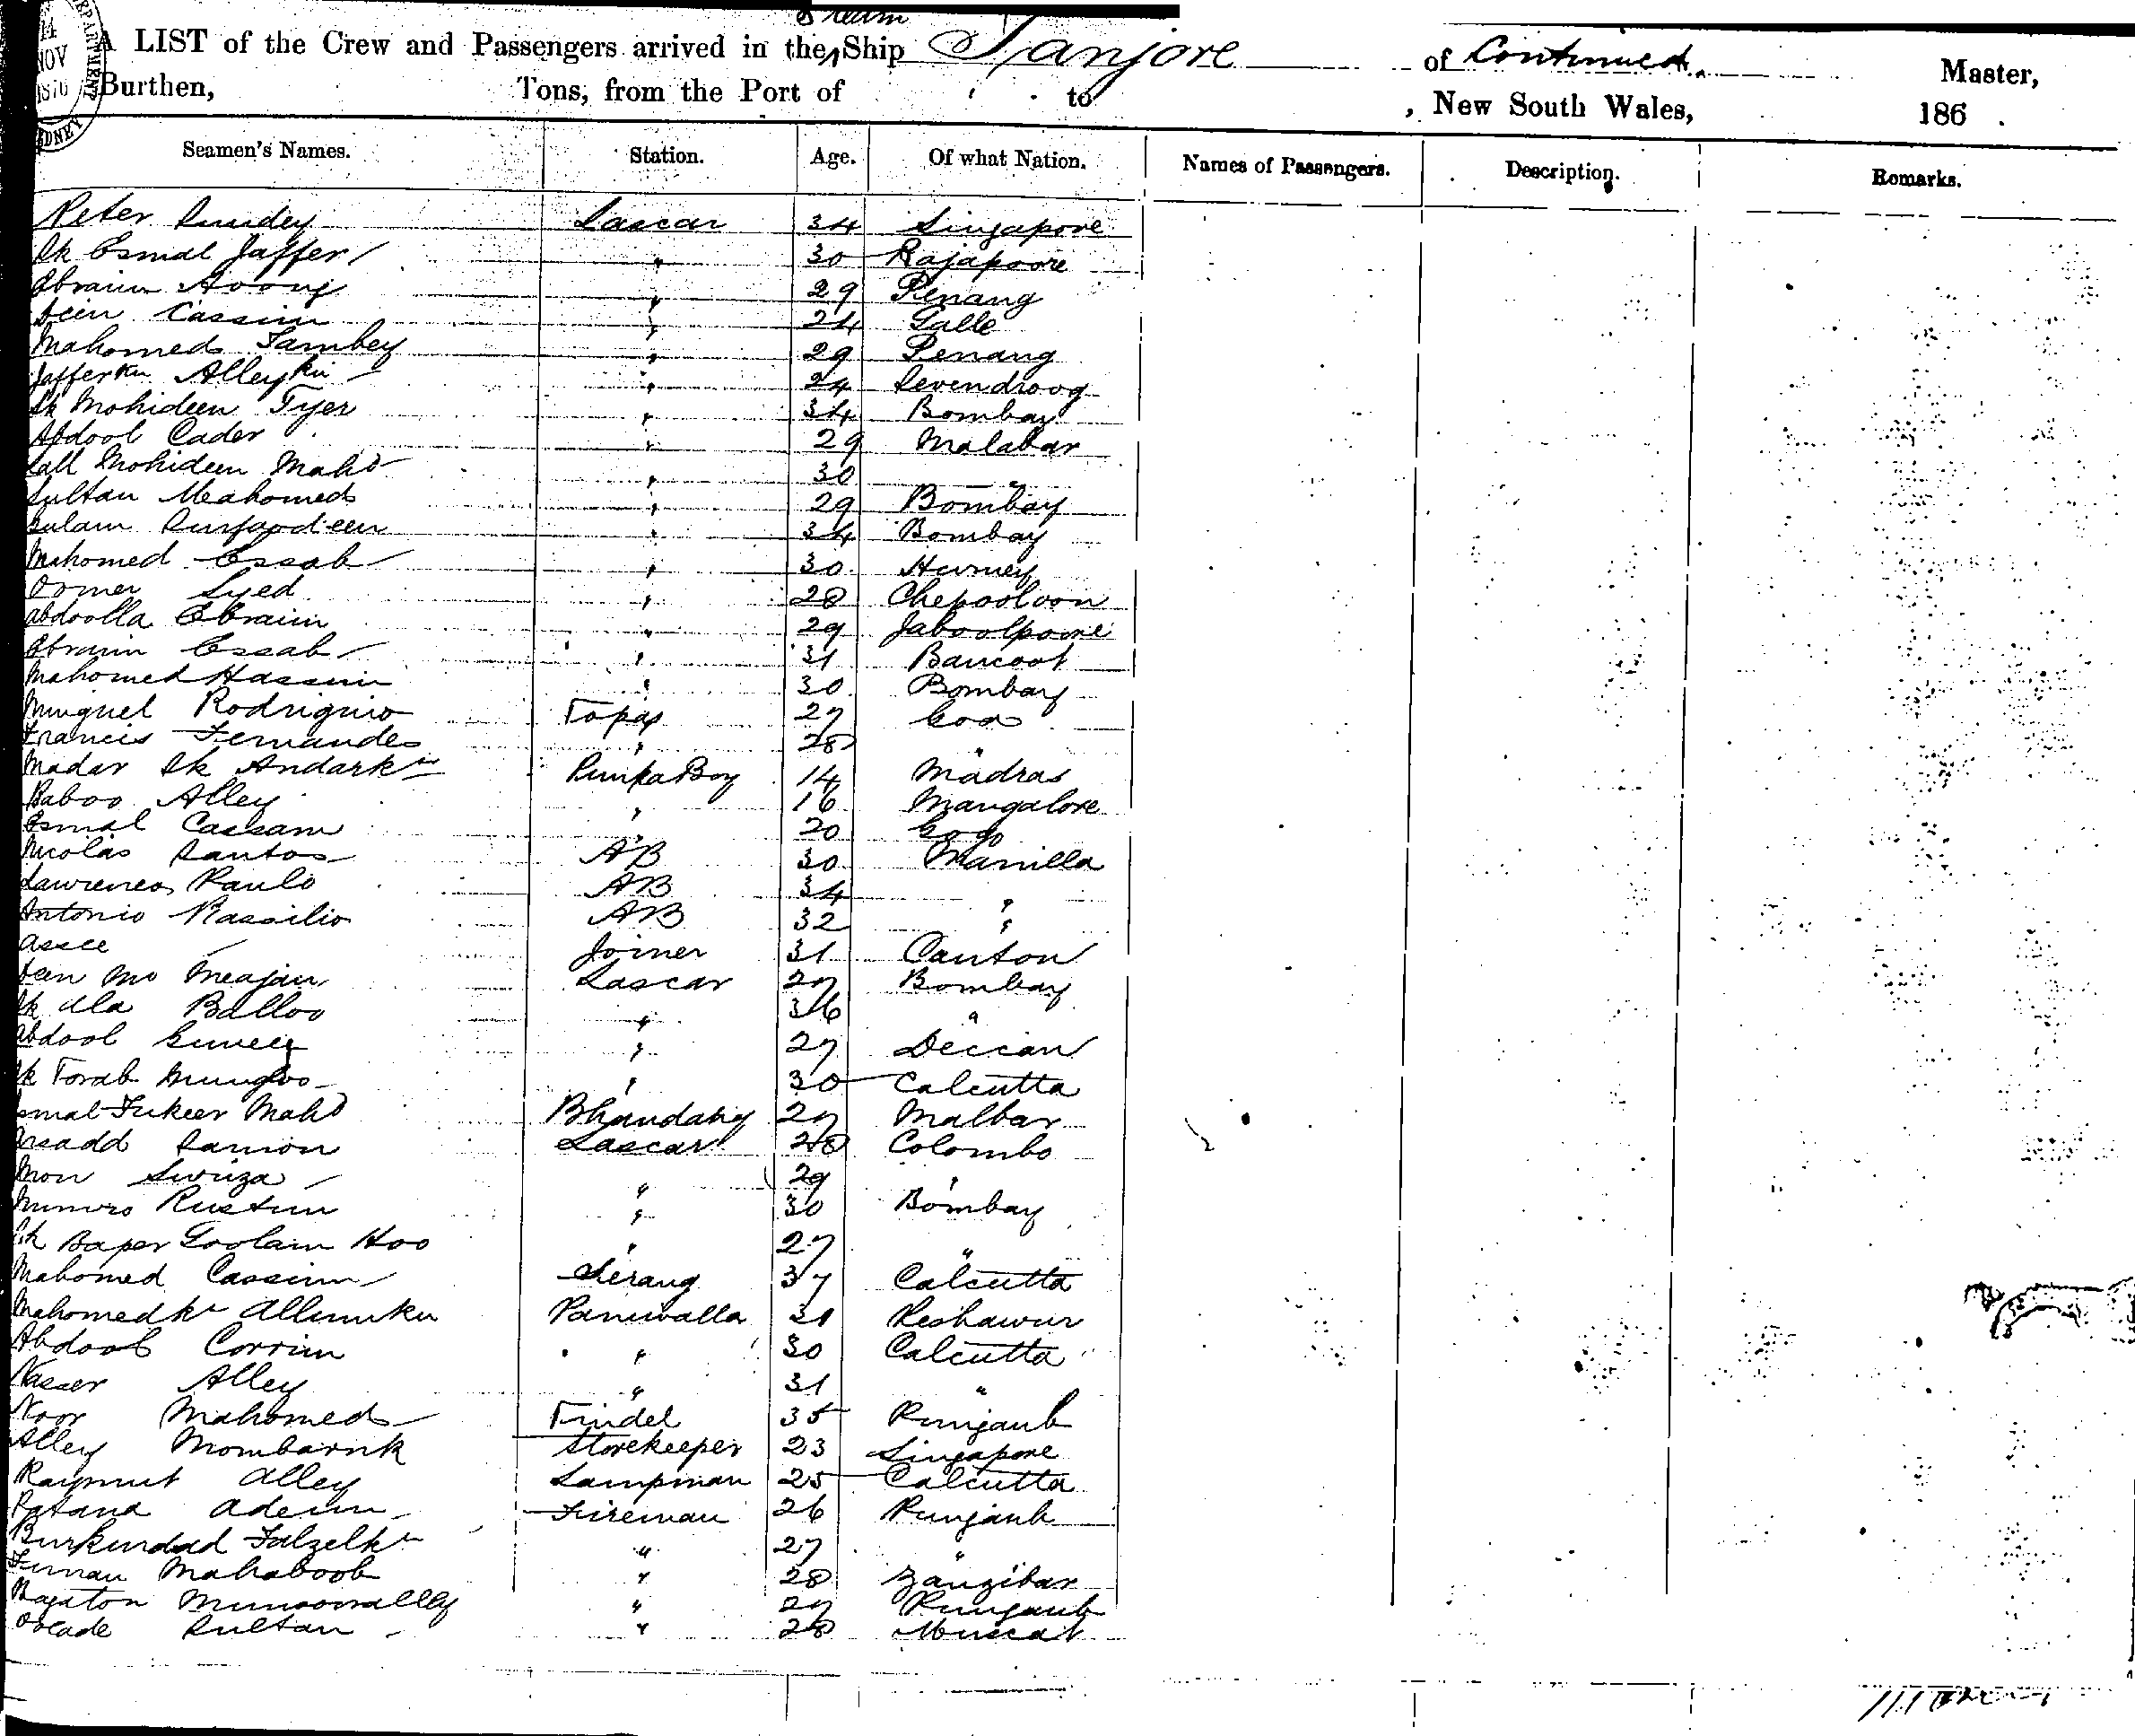 14 NOV 1870
SYDNEY
Steam
A LIST of the Crew and Passengers arrived in the Ship Tanjore of Continued Master,
Burthen, Tons, from the Port of to , New South Wales, 186 .
Seamen's Names. Station. Age. Of what Nation. Names of Passengers. Description. Remarks.
Peter Lascar 34 Singapore
Sk Esmal Jaffer " 30 Rajapoore
Ebraim " 29 Penang
Cassim " 24 Galle
Mahomed Tambey " 29 Penang
Jafferkn Alleykn " 24 Severndroog
Sk Mohideen Tyer " 34 Bombay
Abdool Cader " 29 Malabar
Lall Mohideen Mahd " 30 "
Sultan Meahomed " 29 Bombay
Gulam " 34 Bombay
Mahomed Essab " 30 Hurney
Oomer Syed " 28 Chepooloon
Abdoolla Ebraim " 29 Jaboolpoore
Ebraim Essab " 31 Bancoot
Mahomed Hassim " 30 Bombay
Minguel Rodriguio Topas 27 Goa
Francis Fernandes " 28 "
Madar Sk Andarkn Punka Boy 14 Madras
Baboo Alley " 16 Mangalore
Esmal Cassam " 20 Gogo
Nicolas Santos AB 30 Manilla
Lawrence Paulo AB 34 "
Antonio Massilio AB 32 "
Assee Joiner 31 Canton
Deen Mo Meajan Lascar 27 Bombay
Sk Ala Balloo " 36 "
Abdool Gunee " 27 Deccan
Sk Torab Mungloo " 30 Calcutta
Esmal Fukeer Mahd Bhandary 27 Malbar
Assadd Ramon Lascar 28 Colombo
Mon " 29 "
Rustum " 30 Bombay
Sk Baper Goolam Hoo " 27 "
Mahomed Cassim Serang 37 Calcutta
Mahomedkn Allimukn Paniwalla 31 Peshawur
Abdool Corrim " 30 Calcutta
Nasser Alley " 31 "
Noor Mahomed Tindel 35 Punjaub
Alley Mombarrik Storekeeper 23 Singapore
Raymut Alley Lampman 25 Calcutta
Patana Adeem Fireman 26 Punjaub
Burkurdad Falzelkn " 27 "
Mahaboob " 28 Zanzibar
" 27 Punjaub
Sultan " 28 Muscat